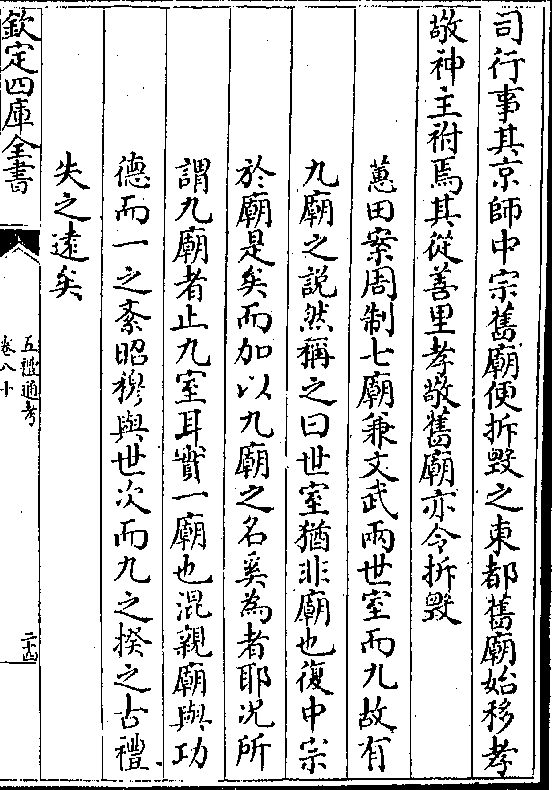 司行事其京師中宗舊廟便拆毀之東都舊廟始移孝
敬神主祔焉其從善里孝敬舊廟亦令拆毀
蕙田案周制七廟兼文武兩世室而九故有
九廟之說然稱之曰世室猶非廟也復中宗
於廟是矣而加以九廟之名奚為者耶況所
謂九廟者止九室耳實一廟也混親廟與功
德而一之紊昭穆與世次而九之揆之古禮
失之遠矣
欽定四庫全書
五禮通考
卷八十
二十四